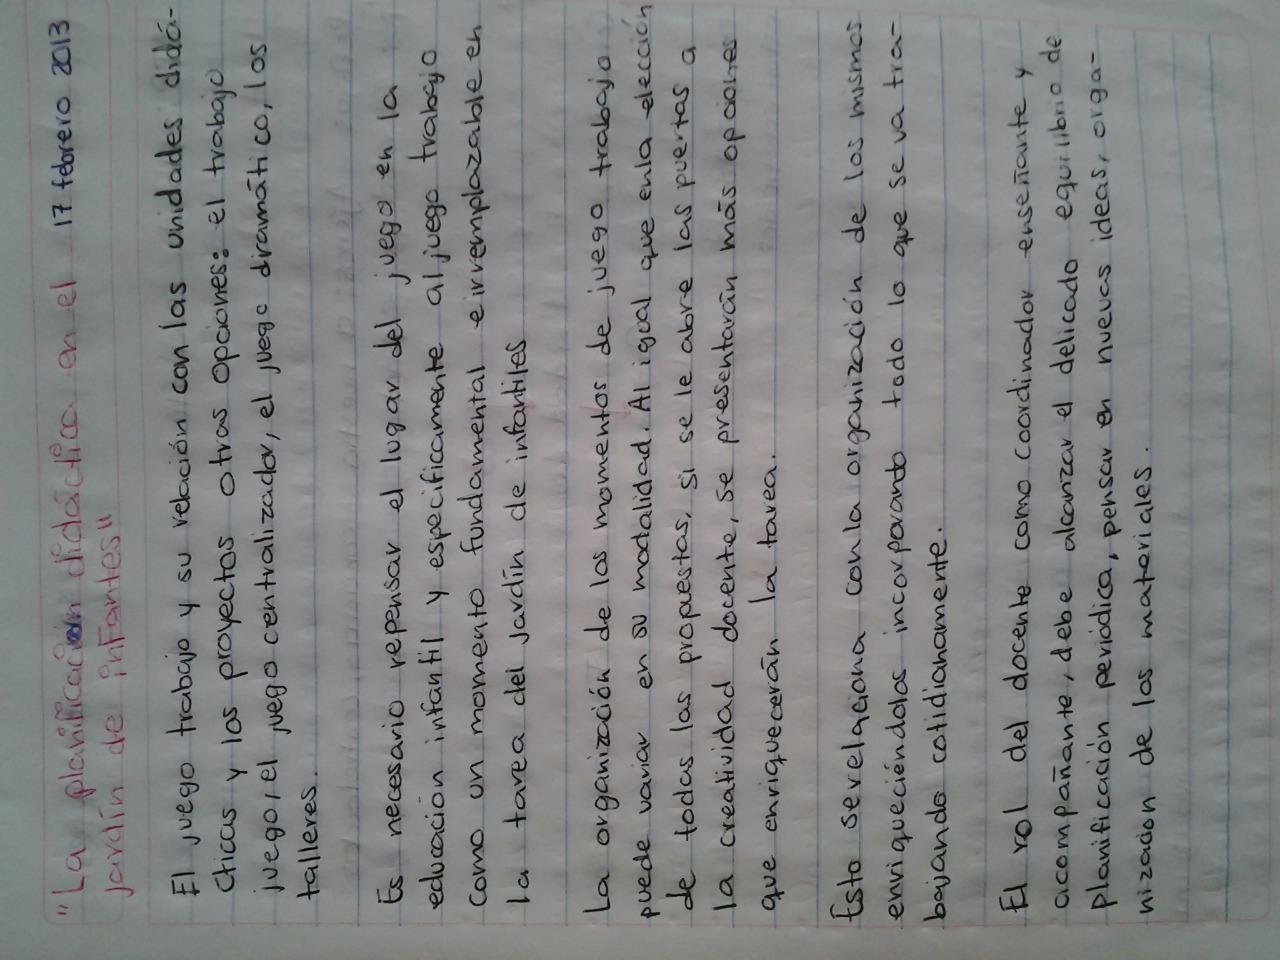 "La planificación didáctica en el 17 febrero 2013
jardín de infantes"
El juego trabajo y su relación con las unidades didá-
cticas y los proyectos otras opciones: el trabajo
juego, el juego centralizador, el juego dramático, los
talleres.
Es necesario repensar el lugar del juego en la
educación infantil y especificamente al juego trabajo
como un momento fundamental e irremplazable en
la tarea del jardín de infantiles
La organización de los momentos de juego trabajo
puede variar en su modalidad. Al igual que en la elección
de todas las propuestas, si se le abre las puertas a
la creatividad docente, se presentarán más opciones
que enriquecerán la tarea.
Esto se relaciona con la organización de los mismos
enriqueciéndolos incorporando todo lo que se va tra-
bajando cotidianamente.
El rol del docente como coordinador enseñante y
acompañante, debe alcanzar el delicado equilibrio de
planificación periódica, pensar en nuevas ideas, orga-
nización de los materiales.